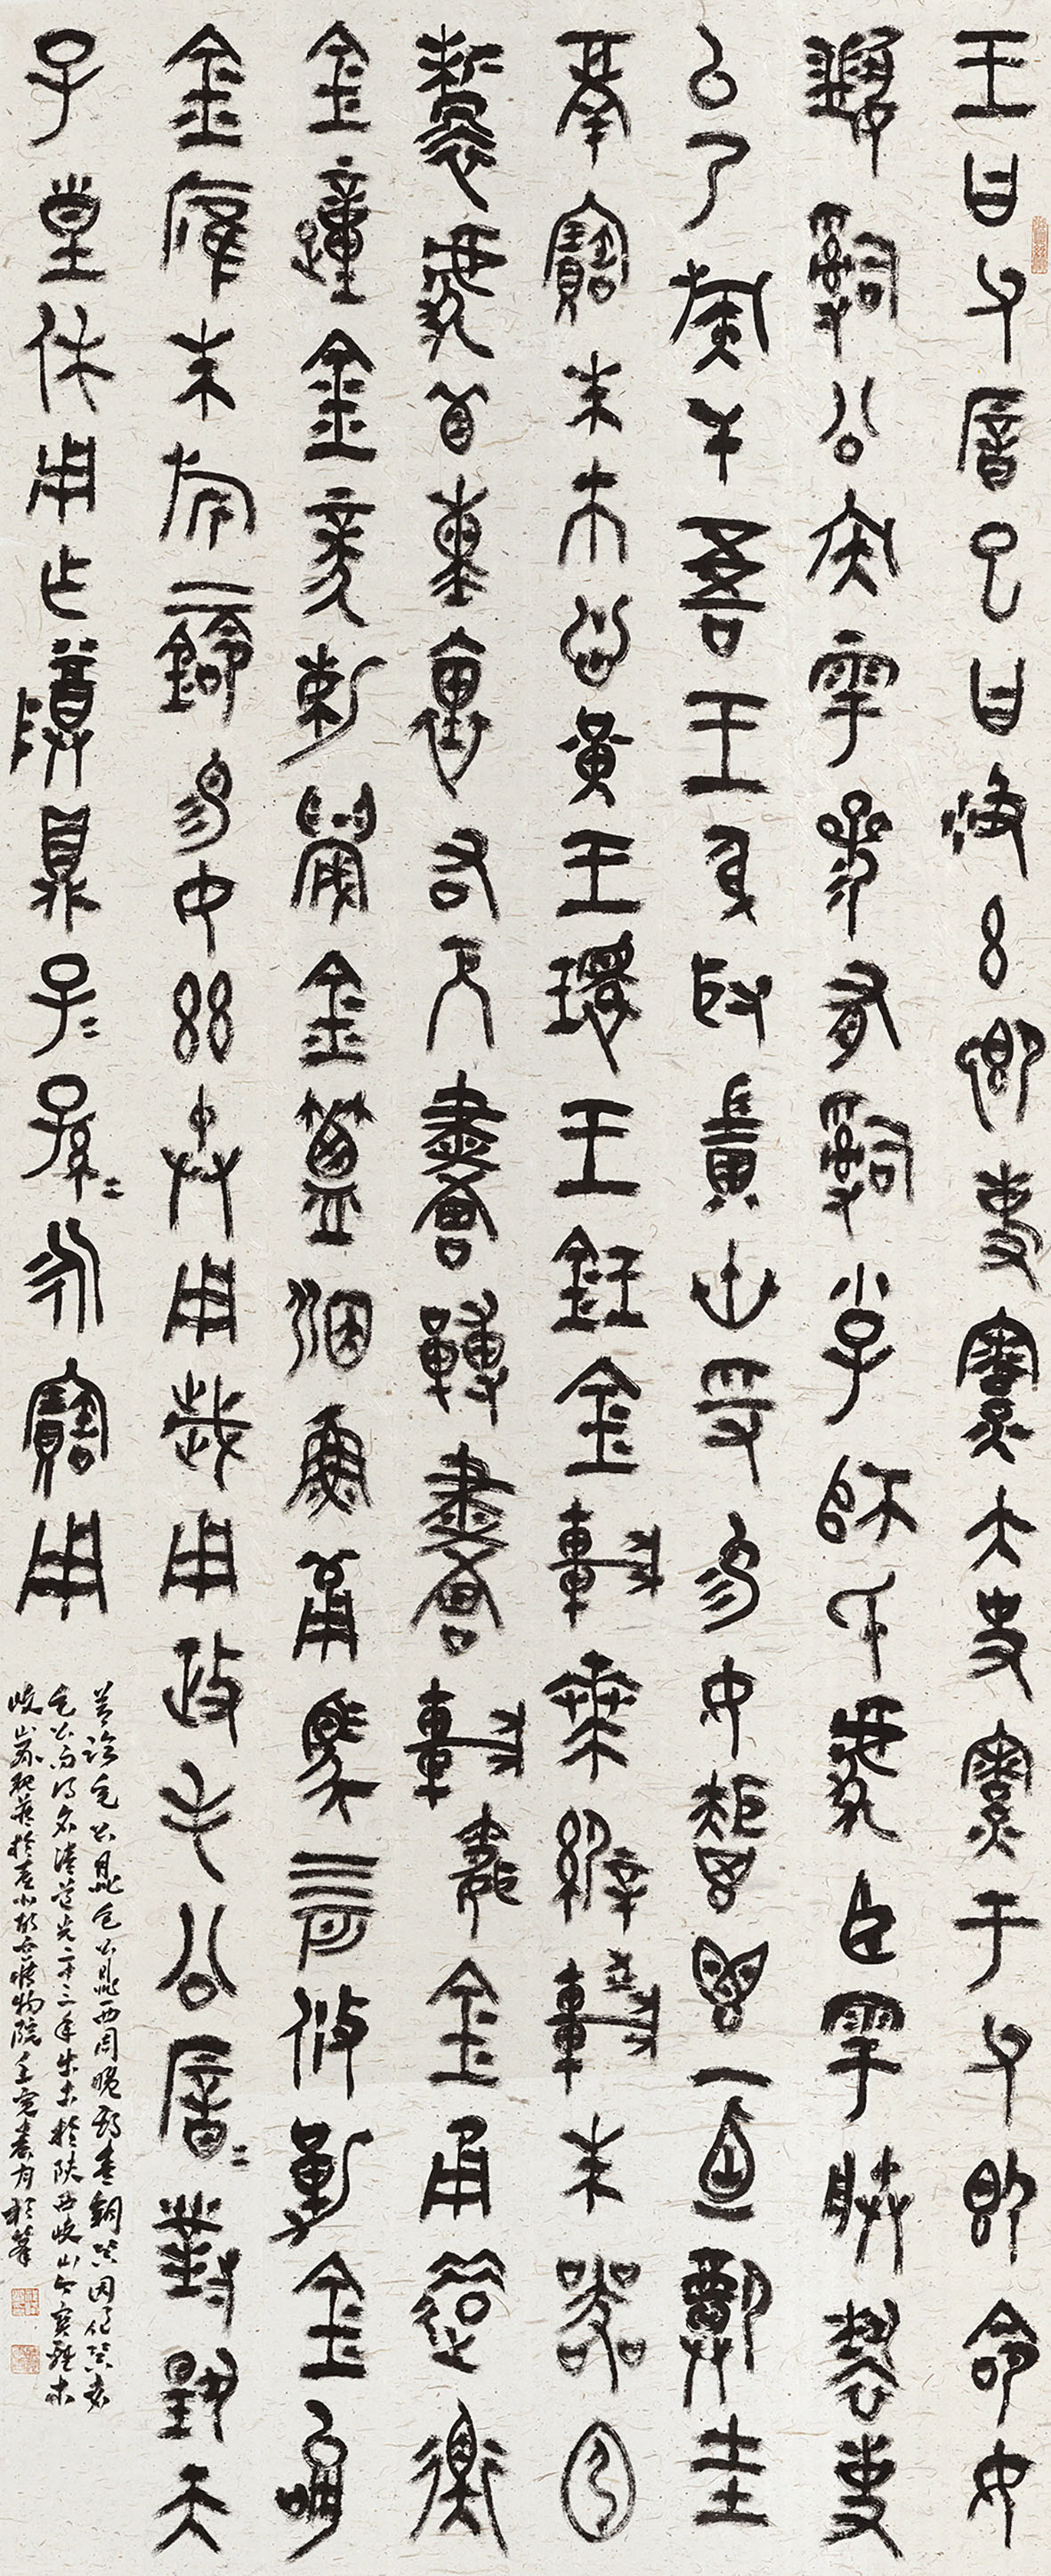 王曰父厝已曰彶茲卿事寮大史寮于父即命女
𤔲公族雩參有𤔲小子師氏虎臣雩朕褻事
以乃族干吾王身取卅寽易女秬鬯一卣祼圭
瓚寶朱巿悤黃玉環玉瑹金車𠦪緟較朱
靳虎冟熏裏右厄畫畫金甬錯衡
金踵金豙金簟笰魚箙馬四匹攸勒金
金膺朱旂二鈴易女茲灷用歲用政毛公厝對揚天
子皇休用作尊鼎子子孫孫永寶用
節臨毛公鼎毛公鼎西周晚期青銅器因作器者
毛公而得名清道光二十三年出土於陝西岐山今寶雞市
岐山現藏於臺北故宮博物院壬寅春月